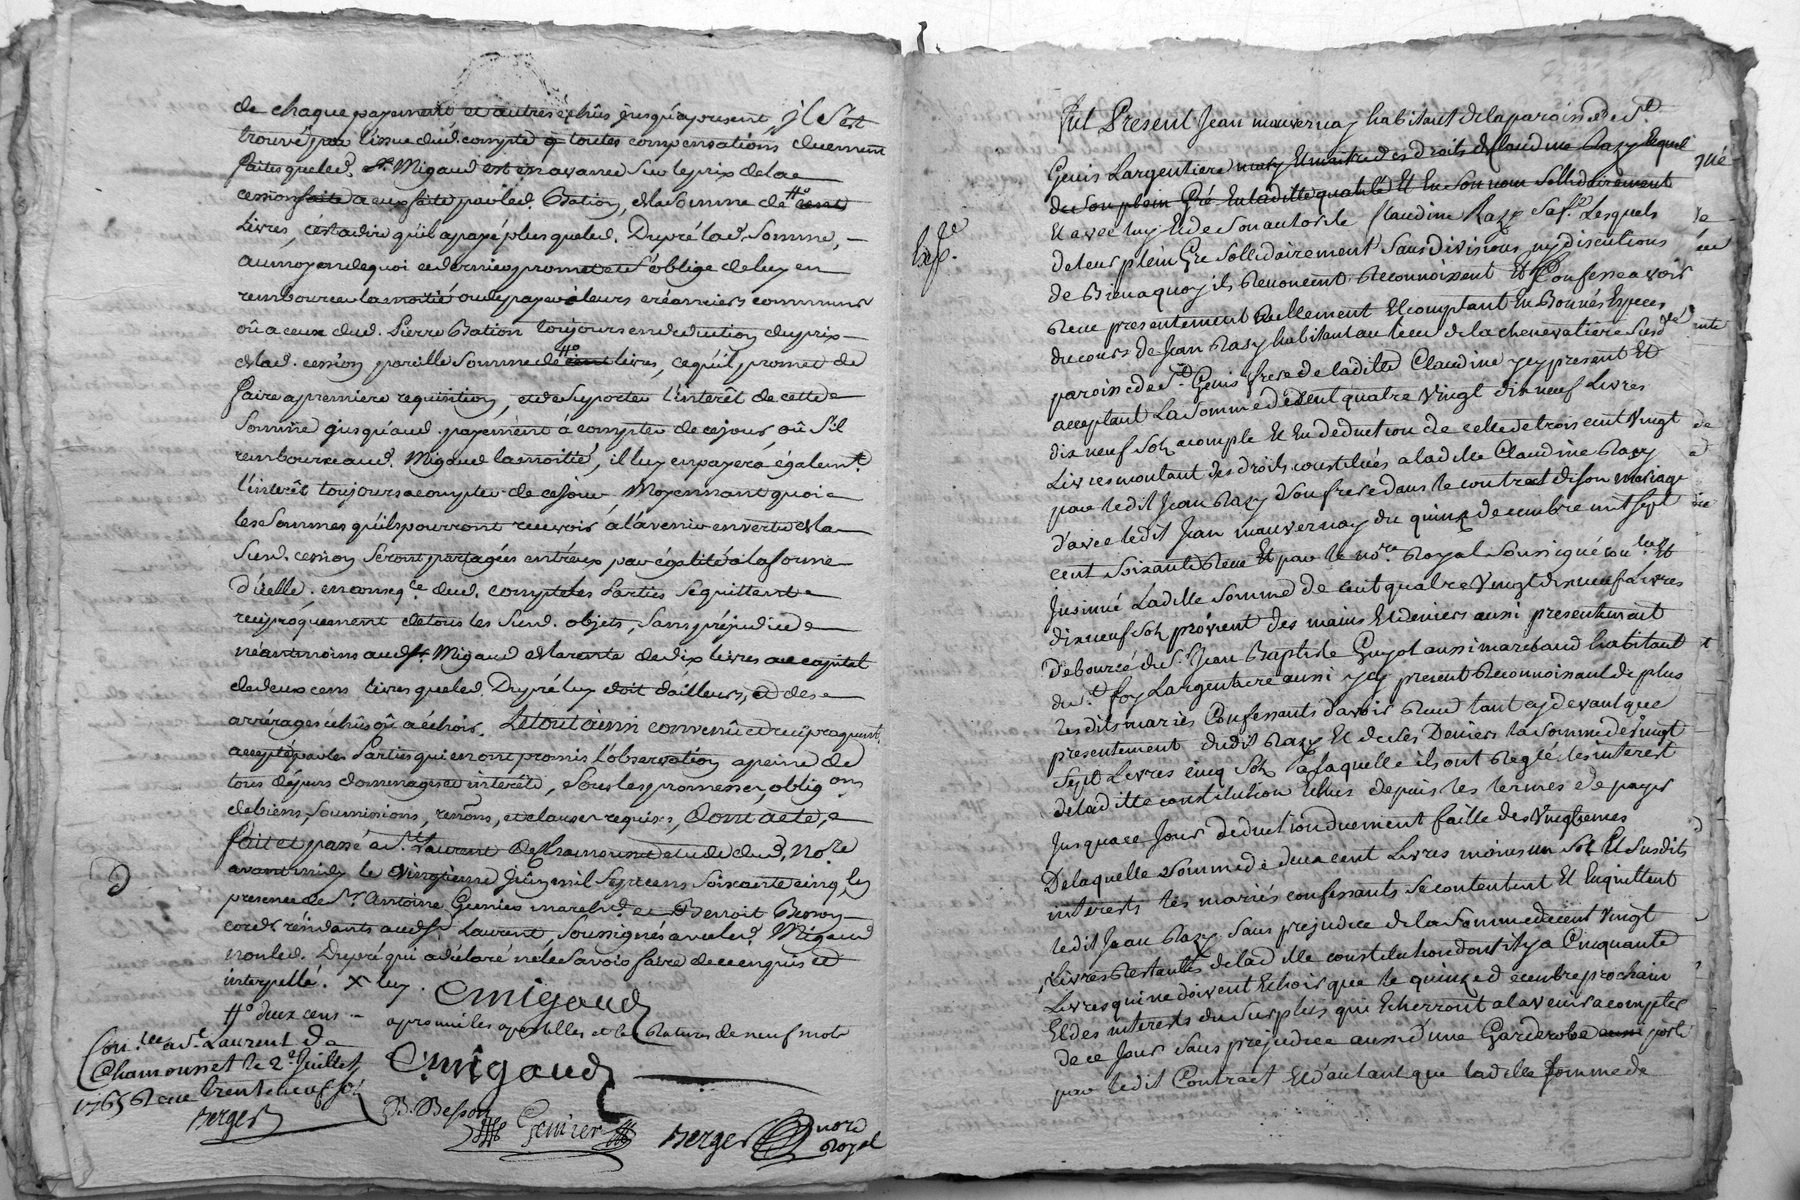 de chaque payement et autres échûs jusqu'apresent, Il s'est
trouvé par l'issue dud. compte & toutes compensations duement
faites que led. Sr. Migaud est en avance sur le prix de la
cession faite a eux faite par led. Bation, de la somme de #° cent
Livres, c'est a dire qu'il a payé plus que led. Dupré lad. Somme,
au moyen de quoi ce dernier promet et s'oblige de luy en
rembourcer la moitié ou de payer à leurs créanciers communs
où a ceux dud. Pierre Bation toujours en deduction du prix
de lad. cession pareille Somme de #° cent livres, ce qu'il promet de
faire a premiere requisition, et de suporter l'interêt de cette
Somme jusqu'aud. payement à compter de ce jour, où S'il
rembource aud. Migaud la moitié, il luy en payera également
l'interêt toujours a compter de ce jour. Moyennant quoi
les Sommes qu'ils pourront recevoir à l'avenir en vertu de la
Susd. cession Seront partagées entr'eux par égalité à la forme
d'icelle. en conseq.ce dud. compte les Parties se quittent
reciproquement de tous les Susd. objets, Sans préjudice
néantmoins aud. Sr. Migaud de la rente de dix livres au capital
de deux cens livres que led. Dupré luy doit d'ailleurs, et des
arrérages échûs où a échoir. Le tout ainsi convenû et réciproquemt.
accepté par les Parties qui en ont promis l'observation a peine de
tous dépens dommages et intérêts, Sous les promesses, oblig.ons
de biens, Soumissions, renons, et clauses requises, Dont acte,
fait et passé à St. Laurent de Chamousset etude dud. No.re
avant midy le vingtieme Juin mil Sept cens Soixante cinq, en
presence de Sr. Antoine Genier march.d et Benoit Besson
cord.r résidants aud. St. Laurent, Soussignés avec led. Migaud
non led. Dupré qui a déclaré ne le Savoir faire de ce enquis et
interpellé. X luy.
Cmigaud
#° deux cens
aprouvé les apostilles et les Ratures de neuf mots
Con.lée à St. Laurent de
Chamousset le 2e. Juillet
1765 Reçu trente neuf s.
Berger
Cmigaud
B. Besson
Genier
Berger nore
Royal
Exp.ée
Fut Present Jean mauvernay habitant de la paroisse de St.
Genis Largentiere mary Et maitre des droits de Claudine Razy Lequel
de Son plein Gré En laditte qualité Et En Son nom Sollidairement
Et avec luy Et de Son autorité Claudine Razy Sa fe. Lesquels
de leur plein Gré Sollidairement Sans divisions ny discutions
de Bien aquoy ils Renoncent Reconnoissent Et Confesse avoir
Reçu presentement Reellement Et comptant En Bonnes Especes
du cours de Jean Razy habitant au lieu de la chenevatiere Susd.te
paroisse de St. Genis frere de ladille Claudine yey present Et
acceptant La Somme de Cent quatre Vingt dix neuf Livres
dix neuf Sols acomple Et En deduction de celle de trois cent Vingt
Livres montant des droits constitués a ladille Claudine Razy
par ledit Jean Razy Son frere dans le contract de Son mariage
d'avec ledit Jean mauvernay du quinze decembre mil Sept
cent Soixante Reçu Et par le no.re Royal Soussigné con.lée Et
Insinué Ladille Somme de Cent quatre Vingt dix neuf Livres
dix neuf Sols provient des mains Et deniers aussi presentement
debourcé du Sr. Jean Baptiste Guyot aussi marchand habitant
du St. foy Largentiere aussi yey present Reconnoissant de plus
lesdits mariés Confessants d'avoir Reçu tant cy devant que
presentement dudit Razy Et de ses Deniers la Somme de Vingt
Sept Livres cinq Sols a laquelle ils ont Reglé les interest
de laditte constitution Echus depuis les termes de payer
Jusqu'a ce Jour deduction duement faitte des Vingtiemes
De laquelle Somme de deux cent Livres moins un Sol Et Susdits
interests les mariés confessants Se contentent Et En quittent
ledit Jean Razy Sans prejudice de la Somme de cent Vingt
Livres Restantes de ladille constitution dont il y a Cinquante
Livres qui ne doivent Echoir que le quinze decembre prochain
Et des interests du Surplus qui Echerront a l'avenir a compter
de ce Jour Sans prejudice aussi d'une Garderobe aussi porté
par ledit Contract Et d'autant que ladille Somme de